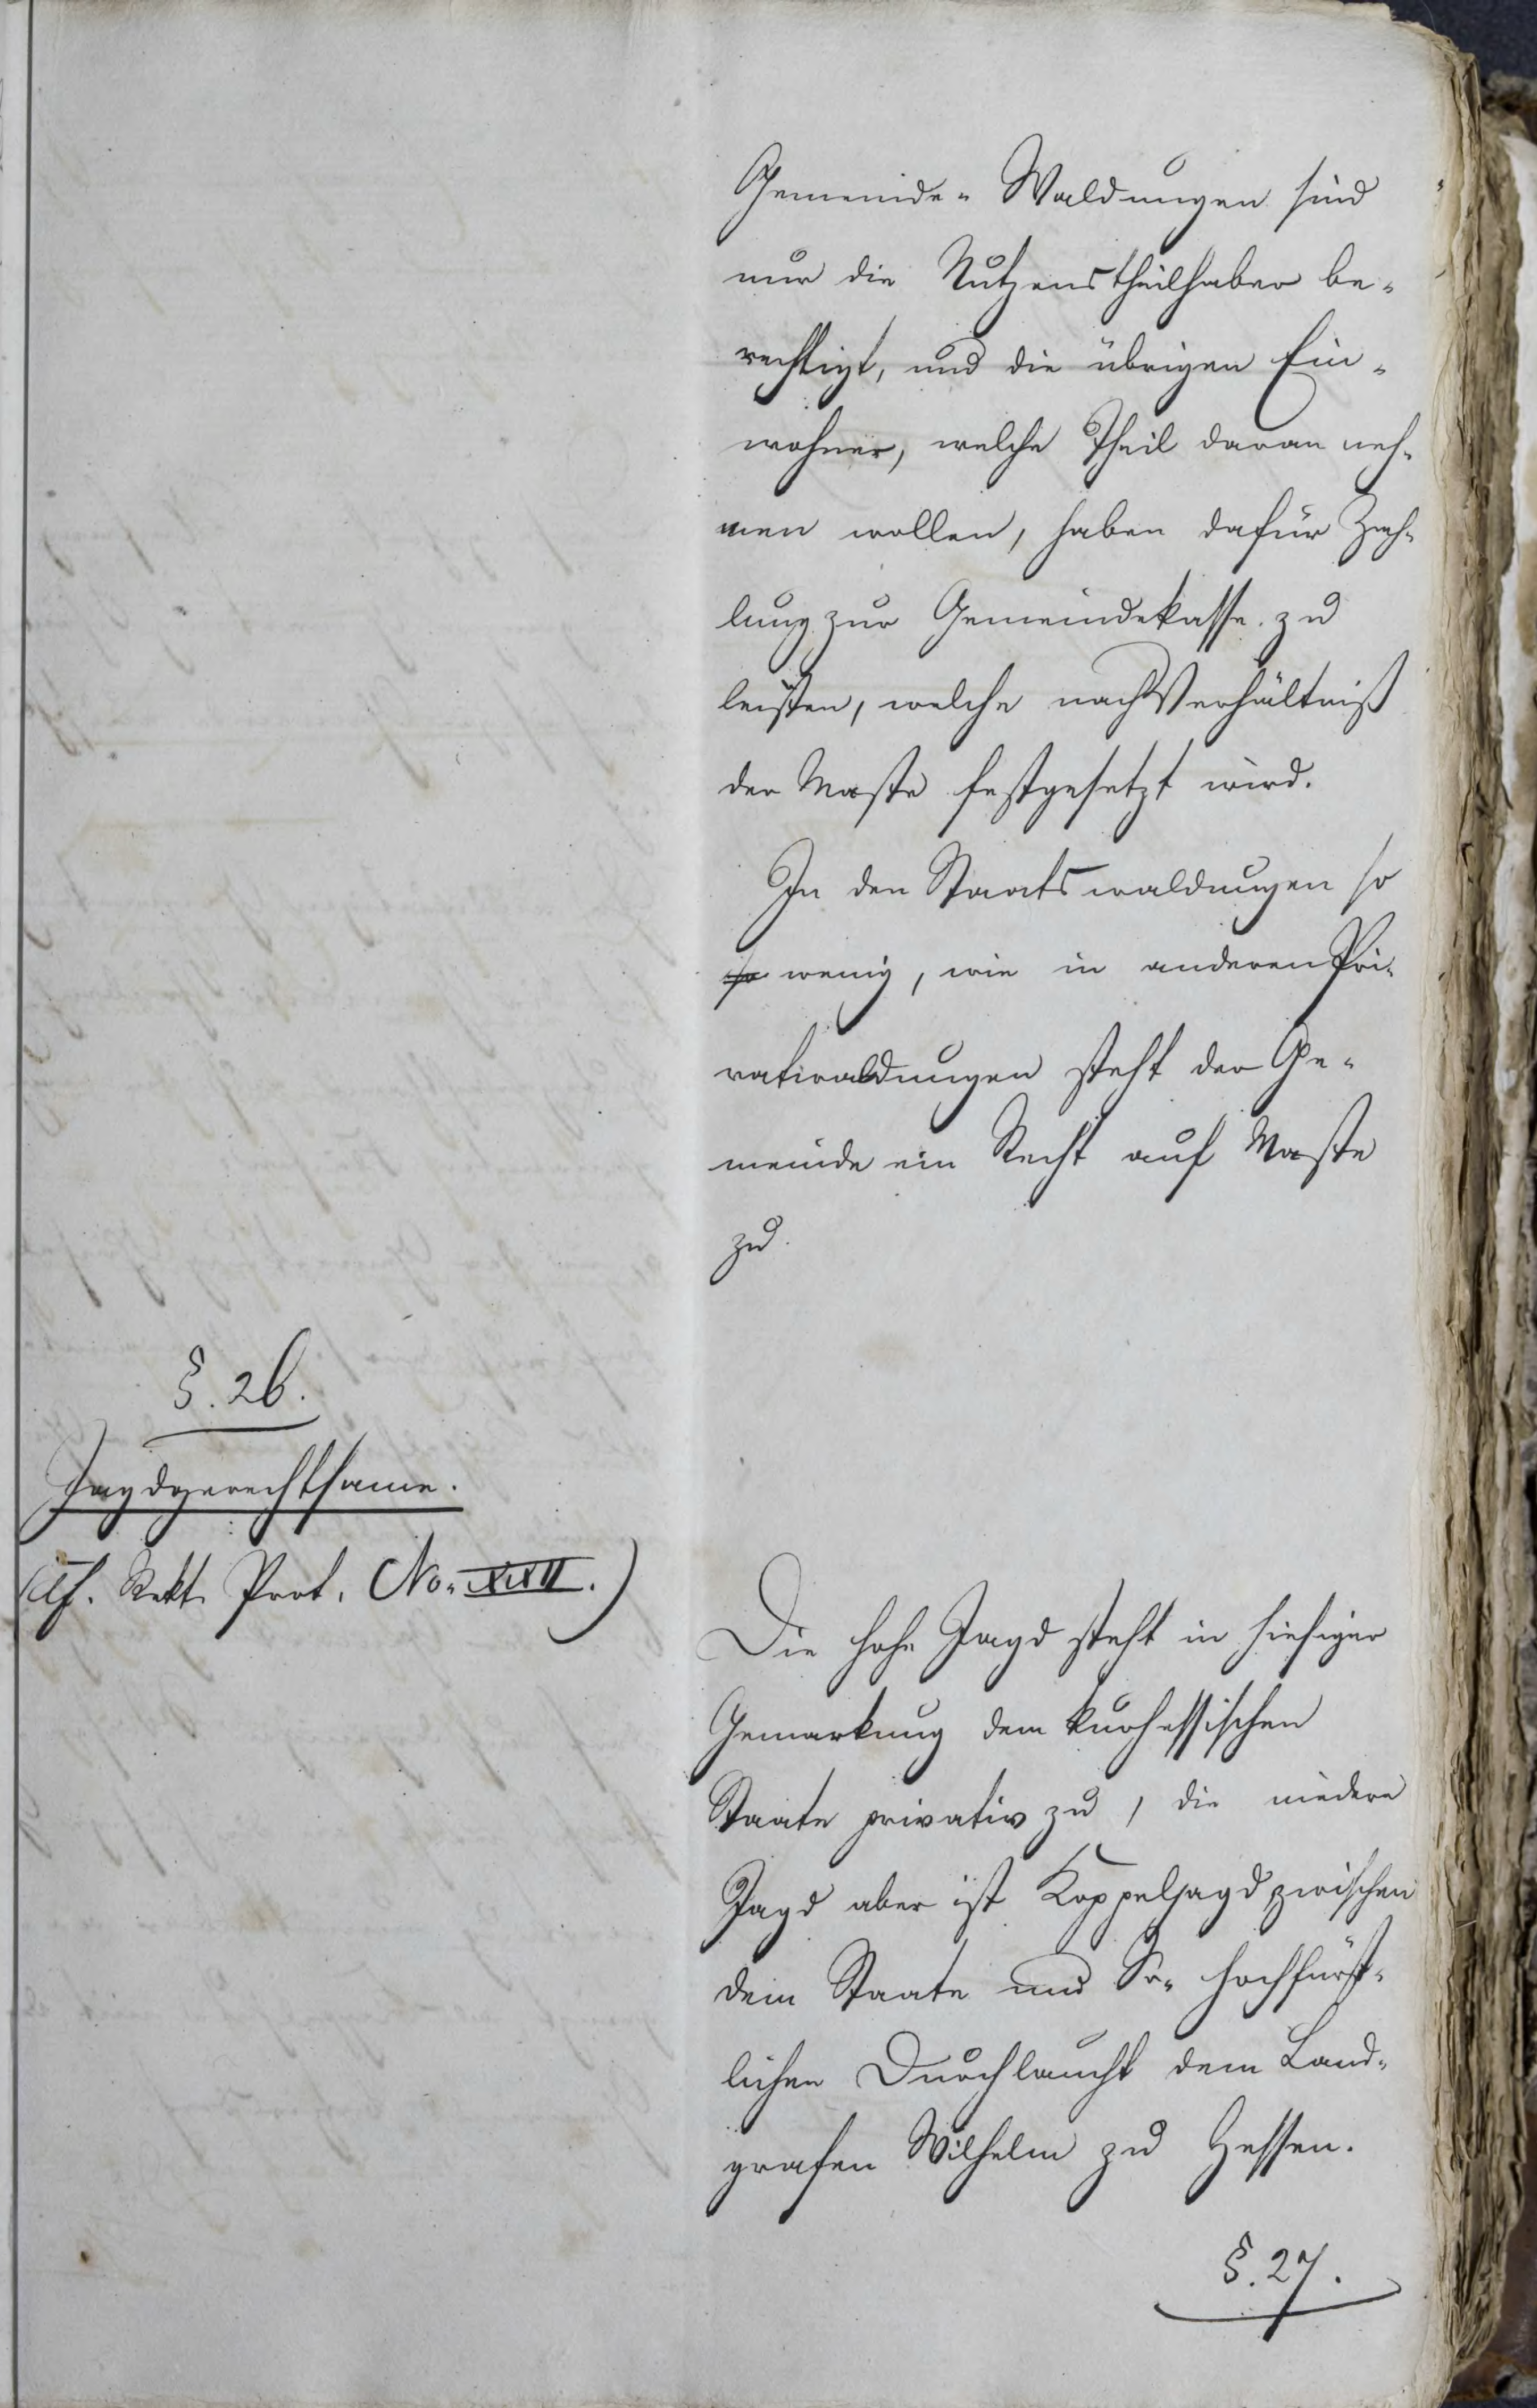 Gemeinde-Waldungen sind
nur die Nutzenstheilhaber be-
rechtigt, und die übrigen Ein-
wohner, welche Theil daran neh-
men wollen, haben dafür Zah-
lung zur Gemeindekasse zu
leisten, welche nach Verhältniß
der Maste festgesetzt wird.
In den Staatswaldungen so
so wenig, wie in anderen Pri-
vatwaldungen steht der Ge-
meinde ein Recht auf Maste
zu.
§. 26.
Jagdgerechtsame.
(cf. Rekt. Prot. No. XXII.)
Die hohe Jagd steht in hiesiger
Gemarkung dem kurhessischen
Staate privativ zu, die niedere
Jagd aber ist Koppeljagd zwischen
dem Staate und Sr. hochfürst-
lichen Durchlaucht dem Land-
grafen Wilhelm zu Hessen.
§. 27.